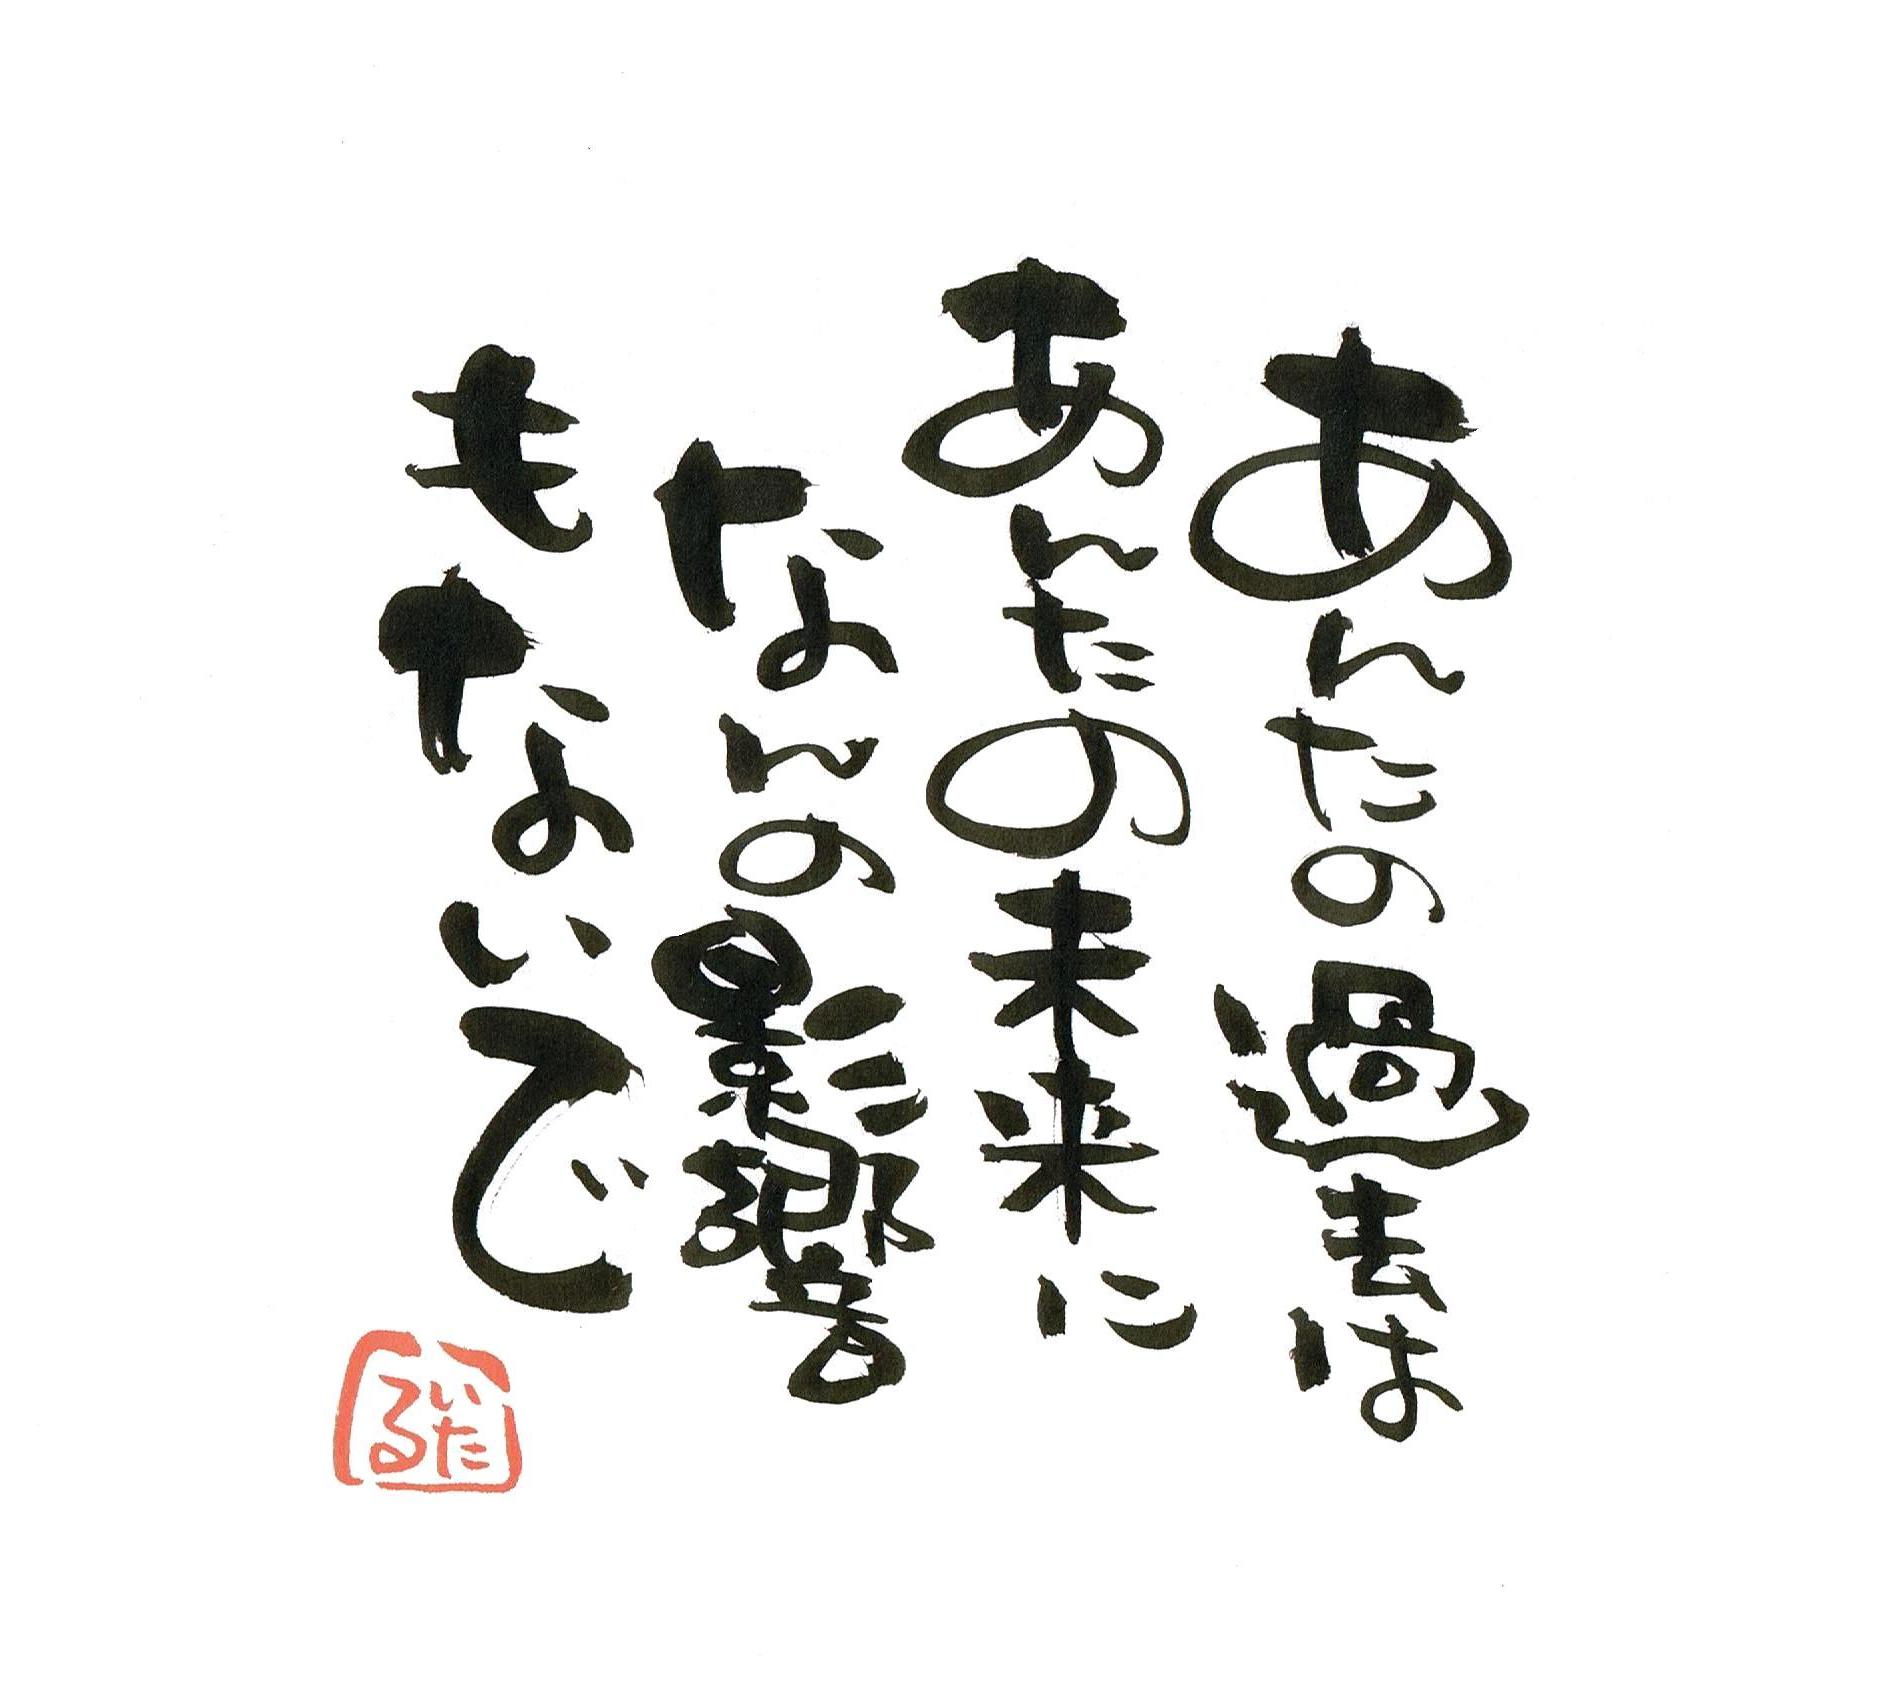 あんたの過去は
あんたの未来に
なんの影響
もないで
いたる